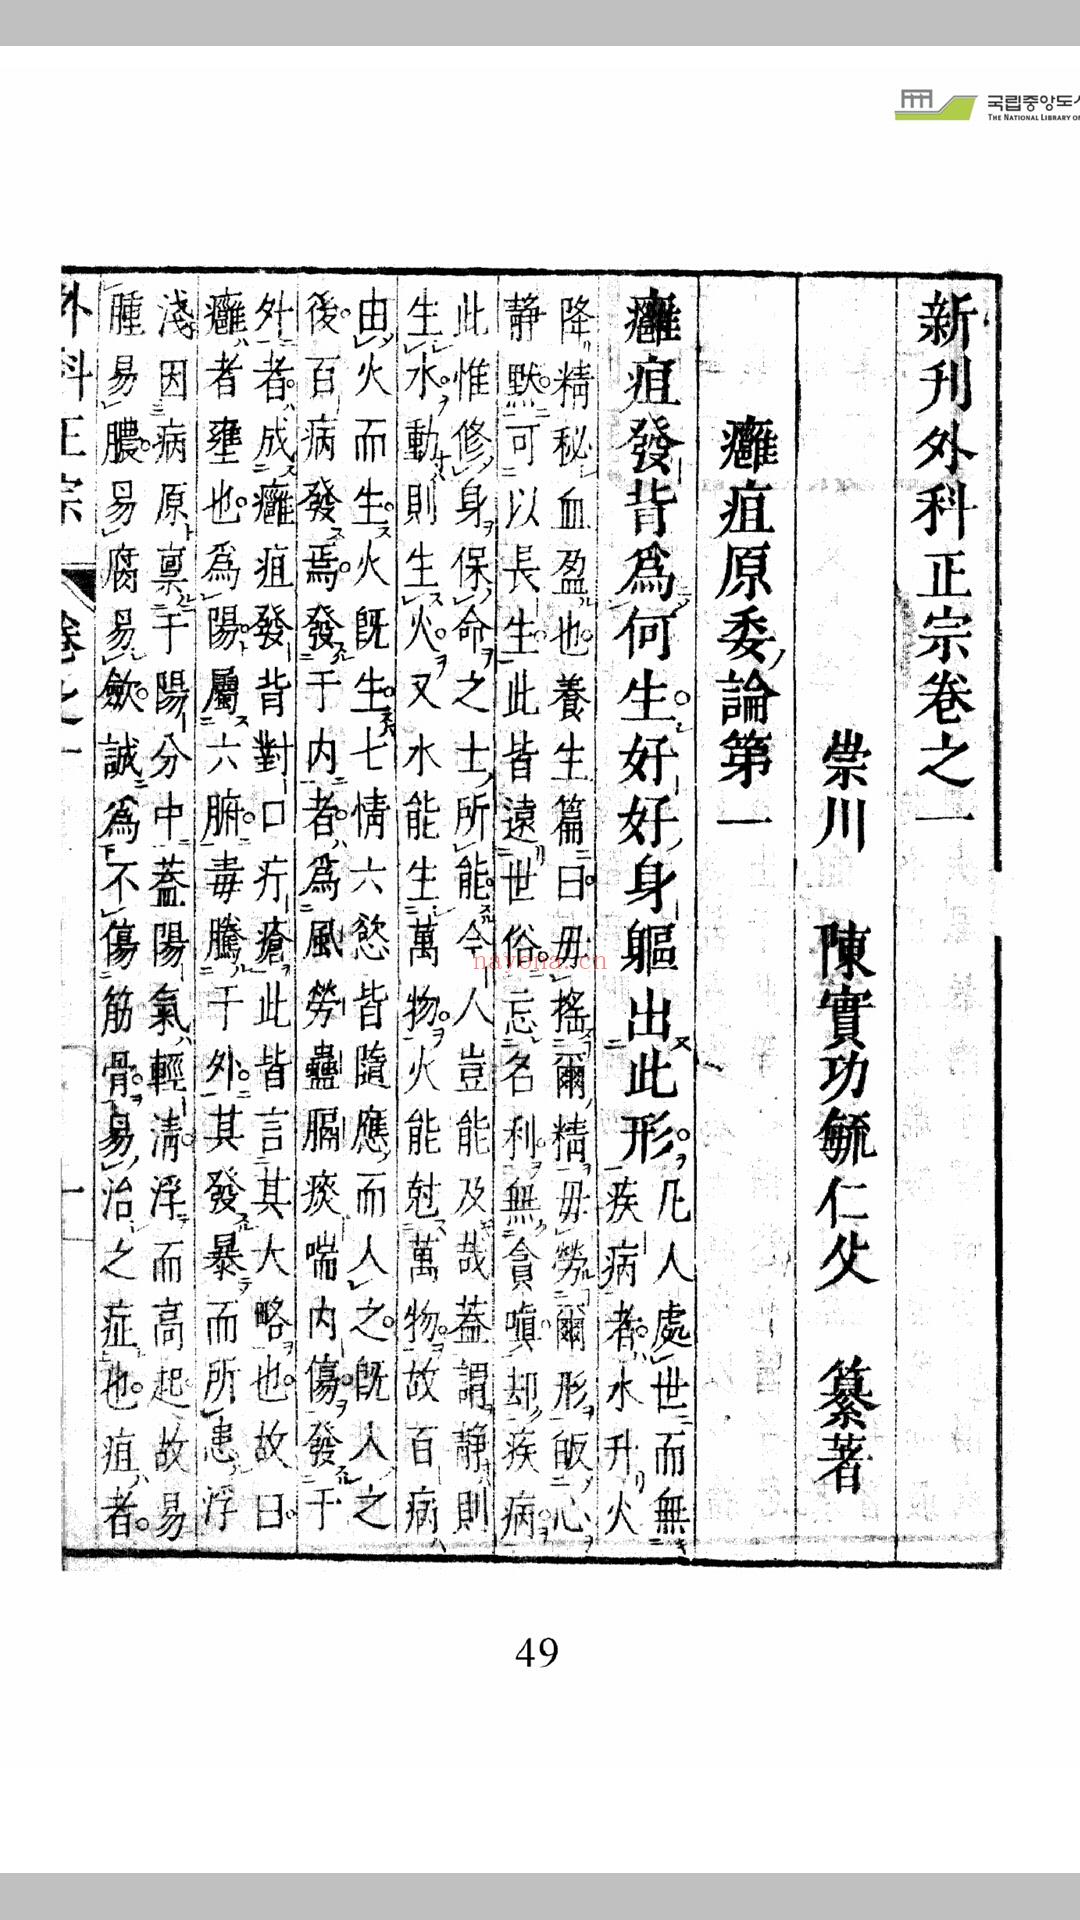 국립중앙도
THE NATIONAL LIBRARY O
新刊外科正宗卷之一
崇川 陳實功毓仁父 纂著
癰疽原委論第一
癰疽發背爲何生好好身軀出此形
凡人處世而無
疾病者水升火
降精秘血盈也養生篇曰毋搖爾精毋勞爾形皈心
静默可以長生此皆遠世俗忘名利無貪嗔却疾病
此惟修身保命之士所能今人豈能及哉葢謂静則
生水動則生火又水能生萬物火能尅萬物故百病
由火而生火既生七情六慾皆隨應而人之既人之
後百病發焉發于内者爲風勞蠱膈痰喘内傷發于
外者成癰疽發背對口疔瘡此皆言其大略也故曰
癰者壅也爲陽屬六腑毒騰于外其發暴而所患浮
淺因病原禀于陽分中葢陽氣輕清浮而高起故易
腫易膿易腐易歛誠爲不傷筋骨易治之症也疽者
外科正宗 卷之一 一
nayona.cn
49